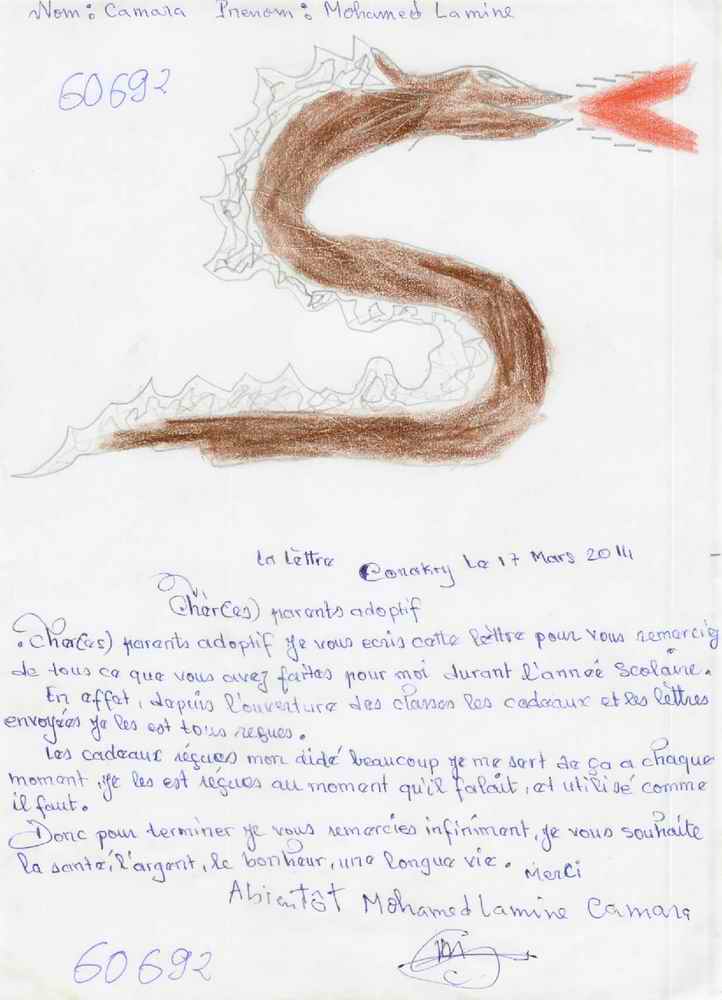 Nom : Camara Prenom : Mohamed Lamine
60692
La lèttre Conakry Le 17 Mars 2014
Chèr(es) parents adoptif
. Chèr(es) parents adoptif je vous ecris cette lèttre pour vous remercié
de tous ce que vous avez faites pour moi durant l'année Scolaire.
En effet, depuis l'ouverture des classes les cadeaux et les lèttres
envoyées je les est tous reçues.
Les cadeaux réçues mon didé beaucoup je me sert de ça a chaque
moment, je les est réçues au moment qu'il falait, et utilisé comme
il faut.
Donc pour terminer je vous remercies infiniment, je vous souhaite
la santé, l'argent, le bonheur, une longue vie. Merci
Abientôt Mohamed Lamine Camara
60692